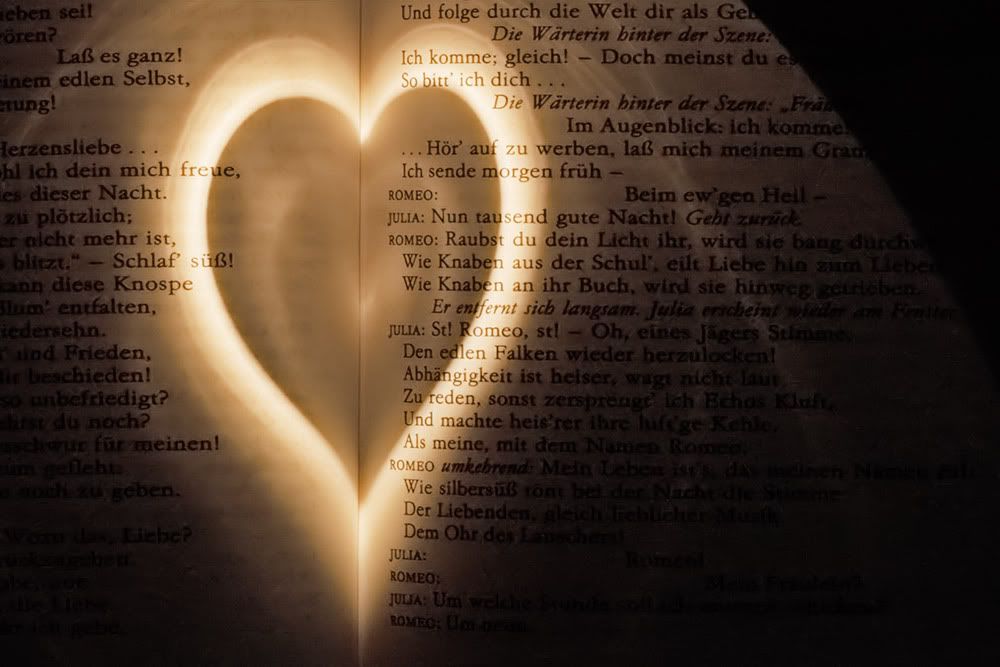 ieben sei!
ören?
Laß es ganz!
inem edlen Selbst,
etung!
Herzensliebe . . .
hl ich dein mich freue,
es dieser Nacht.
zu plötzlich;
er nicht mehr ist,
blitzt.“ – Schlaf’ süß!
kann diese Knospe
Blum’ entfalten,
iedersehn.
und Frieden,
beschieden!
so unbefriedigt?
du noch?
sschwur für meinen!
um gefleht:
noch zu geben.
Wozu das, Liebe?
Und folge durch die Welt dir als Geb
Die Wärterin hinter der Szene:
Ich komme; gleich! – Doch meinst du es
So bitt’ ich dich . . .
Die Wärterin hinter der Szene: „Fräu
Im Augenblick: ich komme!
. . . Hör’ auf zu werben, laß mich meinem Gram
Ich sende morgen früh –
ROMEO: Beim ew’gen Heil –
JULIA: Nun tausend gute Nacht! Geht zurück.
ROMEO: Raubst du dein Licht ihr, wird sie bang durchw
Wie Knaben aus der Schul’, eilt Liebe hin zum Lieben
Wie Knaben an ihr Buch, wird sie hinweg getrieben.
Er entfernt sich langsam. Julia erscheint wieder am Fenster
JULIA: St! Romeo, st! – Oh, eines Jägers Stimme,
Den edlen Falken wieder herzulocken!
Abhängigkeit ist heiser, wagt nicht laut
Zu reden, sonst zersprengt’ ich Echos Kluft,
Und machte heis’rer ihre luft’ge Kehle,
Als meine, mit dem Namen Romeo.
ROMEO umkehrend: Mein Leben ist’s, das meinen Namen
Wie silbersüß tönt bei der Nacht die Stimme
Der Liebenden, gleich lieblicher Musik
Dem Ohr des Lauschers!
JULIA: Romeo!
ROMEO: Mein Fräulein?
JULIA: Um welche Stunde
ROMEO: Um neun.